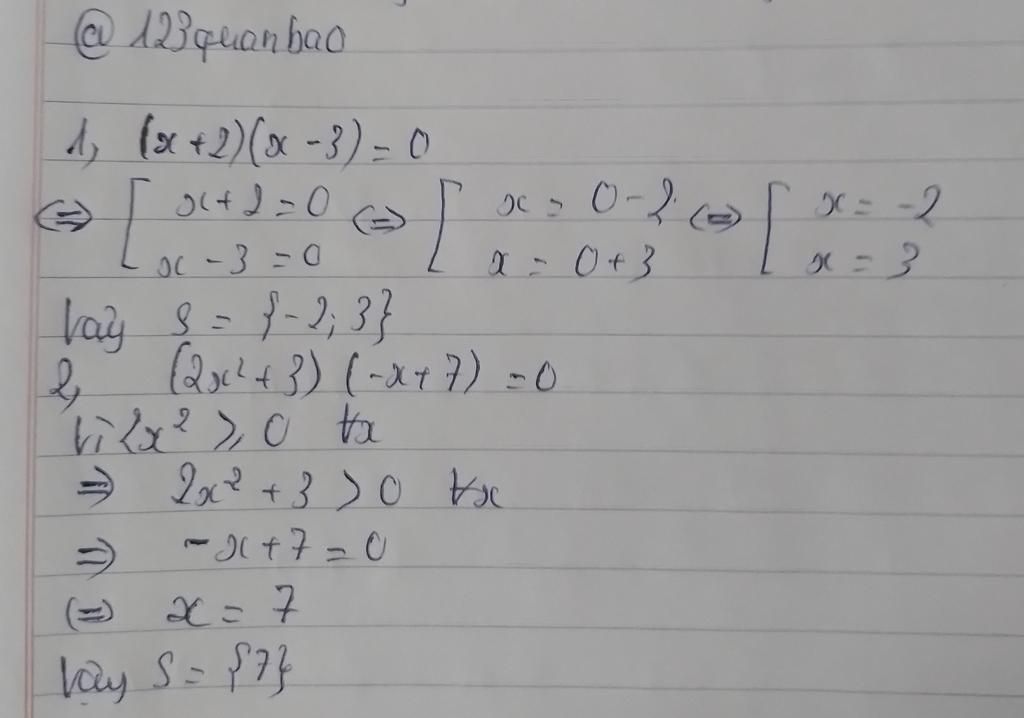 @ 123quanbao
1, (x+2)(x-3)=0
⇔ [ x+2=0 ⇔ [ x = 0-2 ⇔ [ x = -2
x-3=0 x = 0+3 x = 3
Vậy S = {-2; 3}
2, (2x²+3) (-x+7) = 0
Vì 2x² ≥ 0 ∀x
⇒ 2x²+3 > 0 ∀x
⇒ -x+7=0
⇔ x = 7
Vậy S = {7}